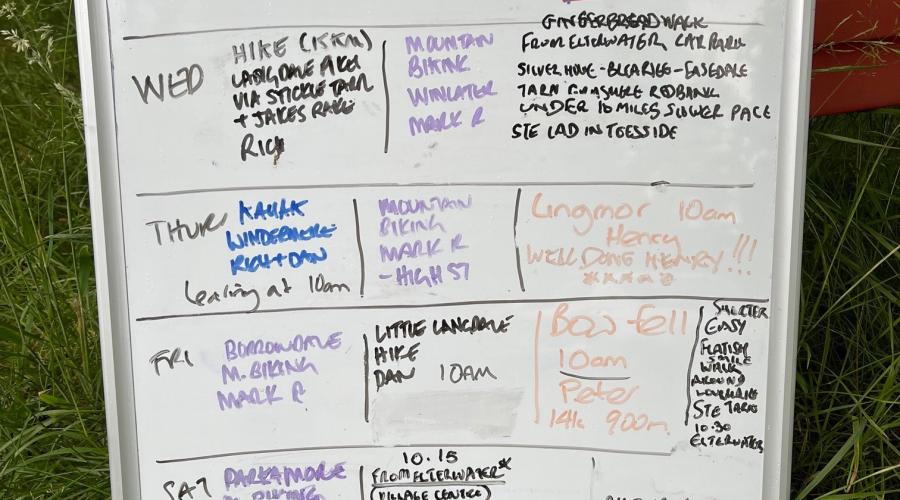 WED
HIKE (15KM)
LANGDALE PIKES
VIA STICKLE TARN
+ JAKES RAKE
RICH
MOUNTAIN
BIKING
WINLATER
MARK R
GINGERBREAD WALK
FROM ELTERWATER CAR PARK
SILVER HOWE - BLEARIES - EASEDALE
TARN GRASMERE REDBANK
UNDER 10 MILES SLOWER PACE
STE LAD IN TEESSIDE
THUR
KAYAK
WINDERMERE
RICH + DAN
Leaving at 10am
MOUNTAIN
BIKING
MARK R
- HIGH ST
Lingmor 10am
Henry
WELL DONE HENRY !!!
*****
FRI
BORROWDALE
M. BIKING
MARK R
LITTLE LANGDALE
HIKE
DAN 10AM
Bow fell
10am
Peter
14k 900m
SHORTER
EASY
FLATISH
WALK
AROUND
LOUGHRIGG
STE TARN
10.30
ELTERWATER
SAT
PARKAMORE
10.15
FROM ELTERWATER*
(VILLAGE CENTRE)